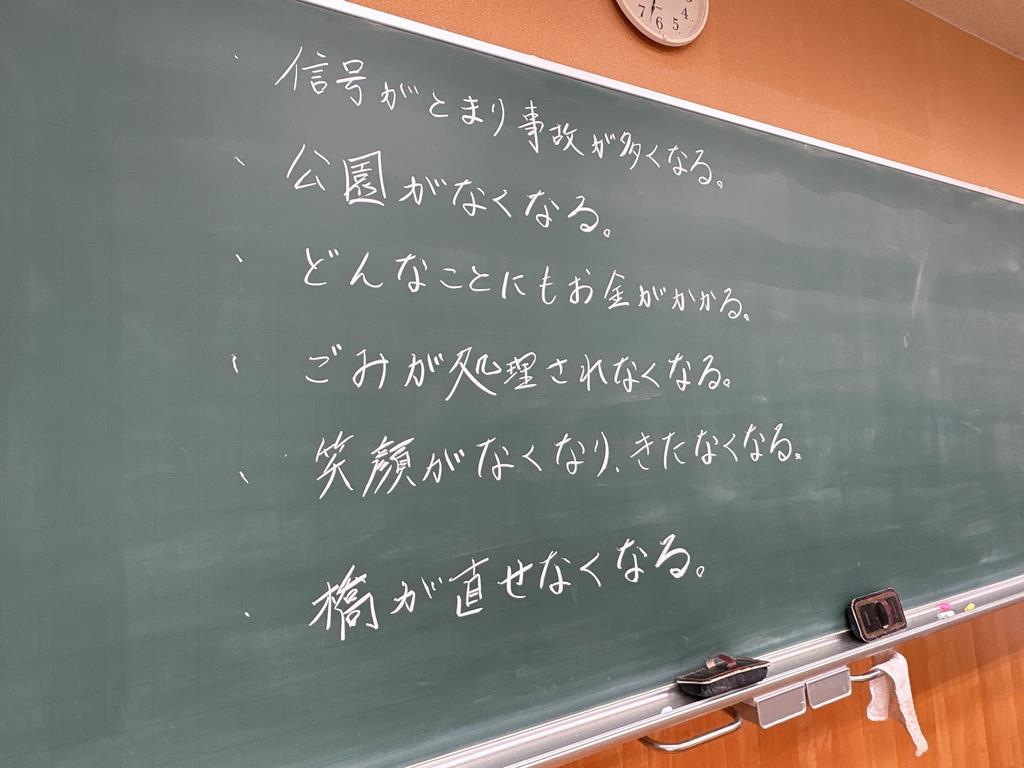 7 6 5 4
・信号がとまり事故が多くなる。
・公園がなくなる。
・どんなことにもお金がかかる。
・ごみが処理されなくなる。
・笑顔がなくなり、きたなくなる。
・橋が直せなくなる。